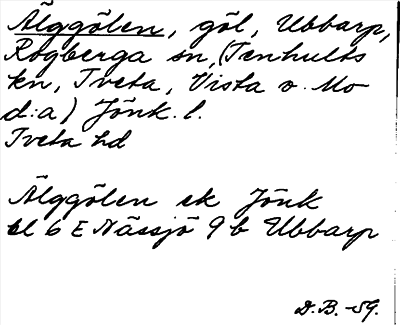 Älggölen, göl, Ubbarp,
Rogberga sn, (Tenhults
kn, Tveta, Vista o. Mo
d:a) Jönk. l.
Tveta hd
Älggölen ek Jönk
bl 6 E Nässjö 9 b Ubbarp
D.B. -59.